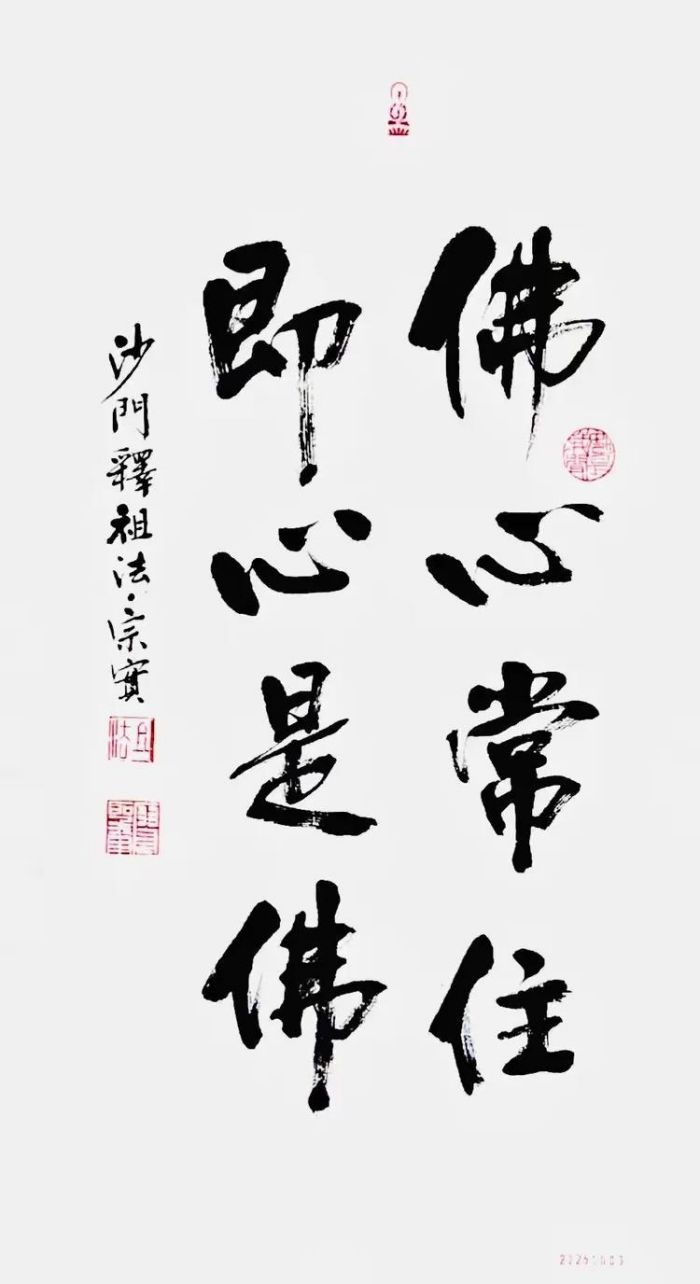 佛心常住
即心是佛
沙門釋祖法·宗實
祖法